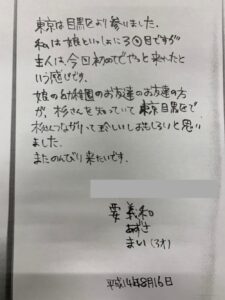 東京は目黒区より参りました。
私は娘といっしょに3回目ですが
主人は、今回初めてでやっと来れたと
いう感じです。
娘の幼稚園のお友達のお友達の方
が、杉さんを知っていて東京目黒区で
杉さんつながりって珍しいしおもしろいと思い
ました。
またのんびり来たいです。
要 義和
あずさ
まい(3才)
平成14年8月16日